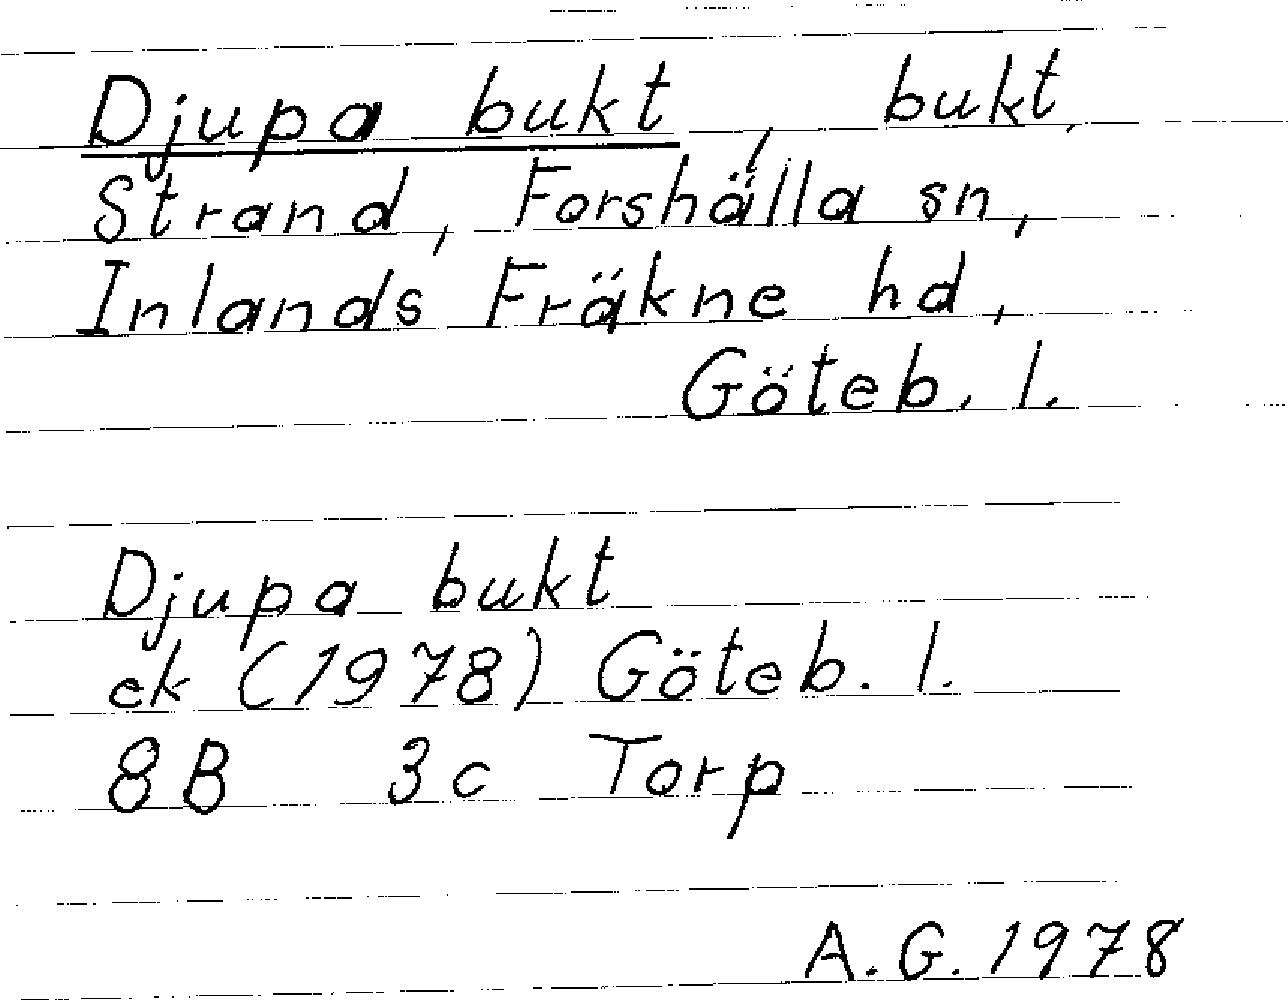 Djupa bukt, bukt,
Strand, Forshälla sn,
Inlands Fräkne hd,
Göteb. l.
Djupa bukt
ek (1978) Göteb. l.
8B 3c Torp
A.G. 1978